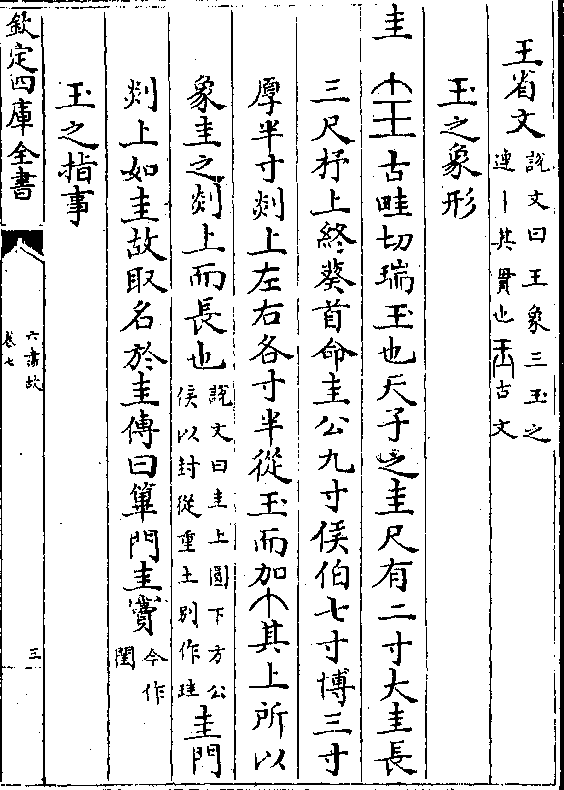 王省文說文曰王象三玉之連丨其貫也古文
玉之象形
圭 古畦切瑞玉也天子之圭尺有二寸大圭長
三尺杼上終葵首命圭公九寸侯伯七寸博三寸
厚半寸剡上左右各寸半從玉而加其上所以
象圭之剡上而長也說文曰圭上圜下方公侯以封從重土别作珪圭門
剡上如圭故取名於圭傳曰篳門圭竇今作閨
玉之指事
欽定四庫全書
六書故
卷七
三